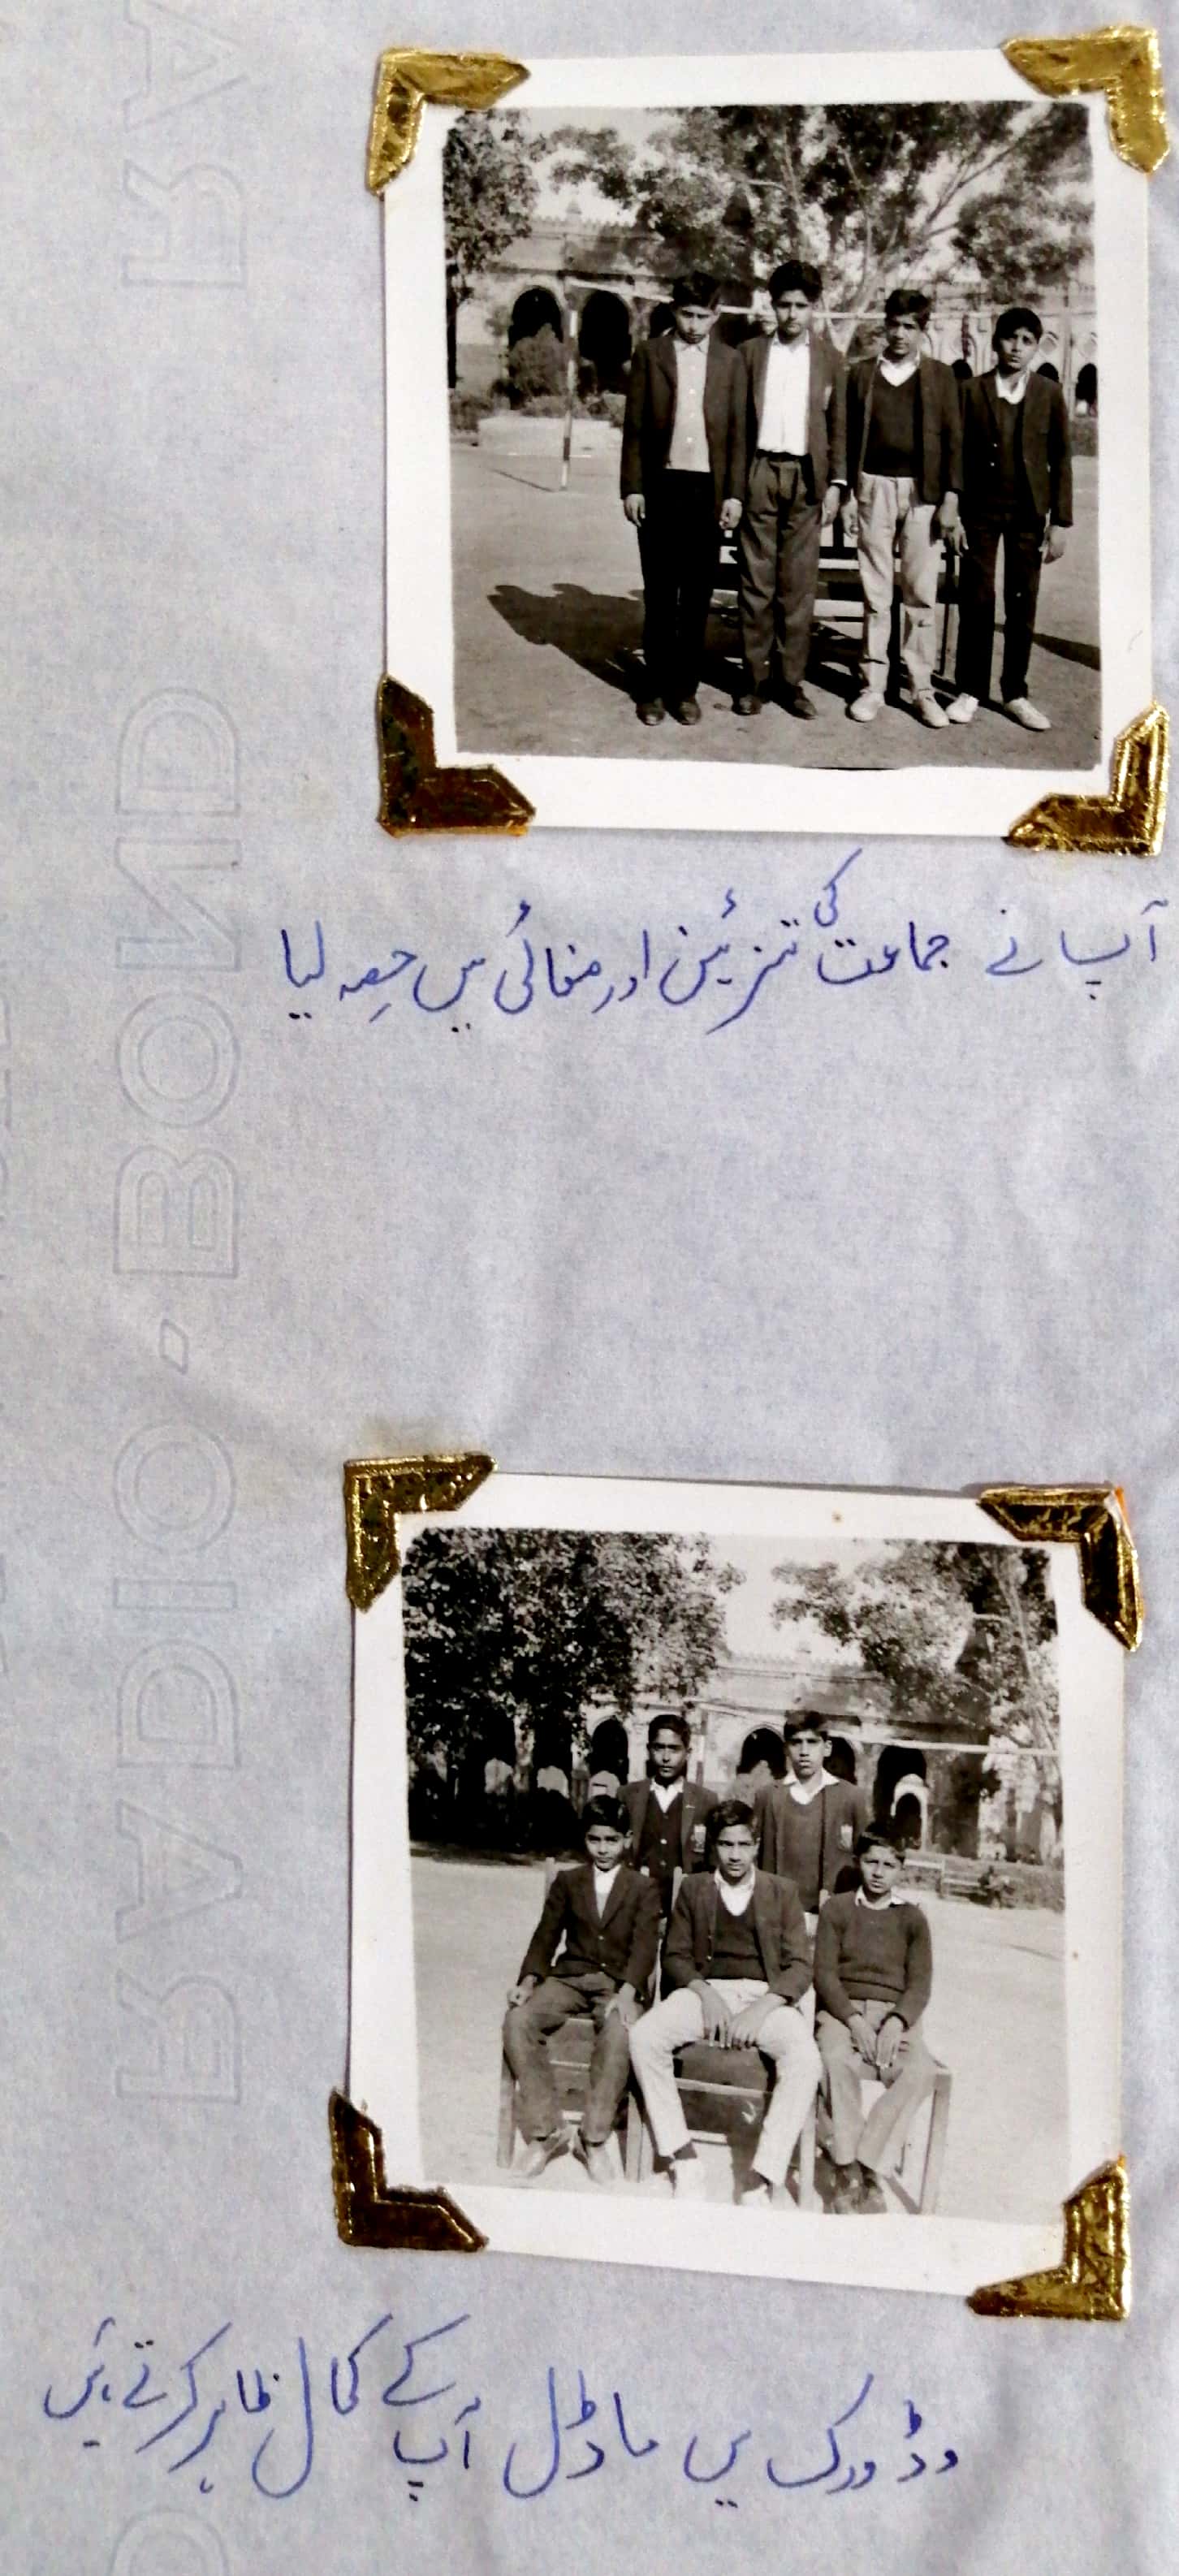 آپ نے جماعت کی تزئین اور صفائی میں حصہ لیا
وڈ ورک میں ماڈل آپ کے کمال ظاہر کرتے ہیں
RADIO BOND
RA